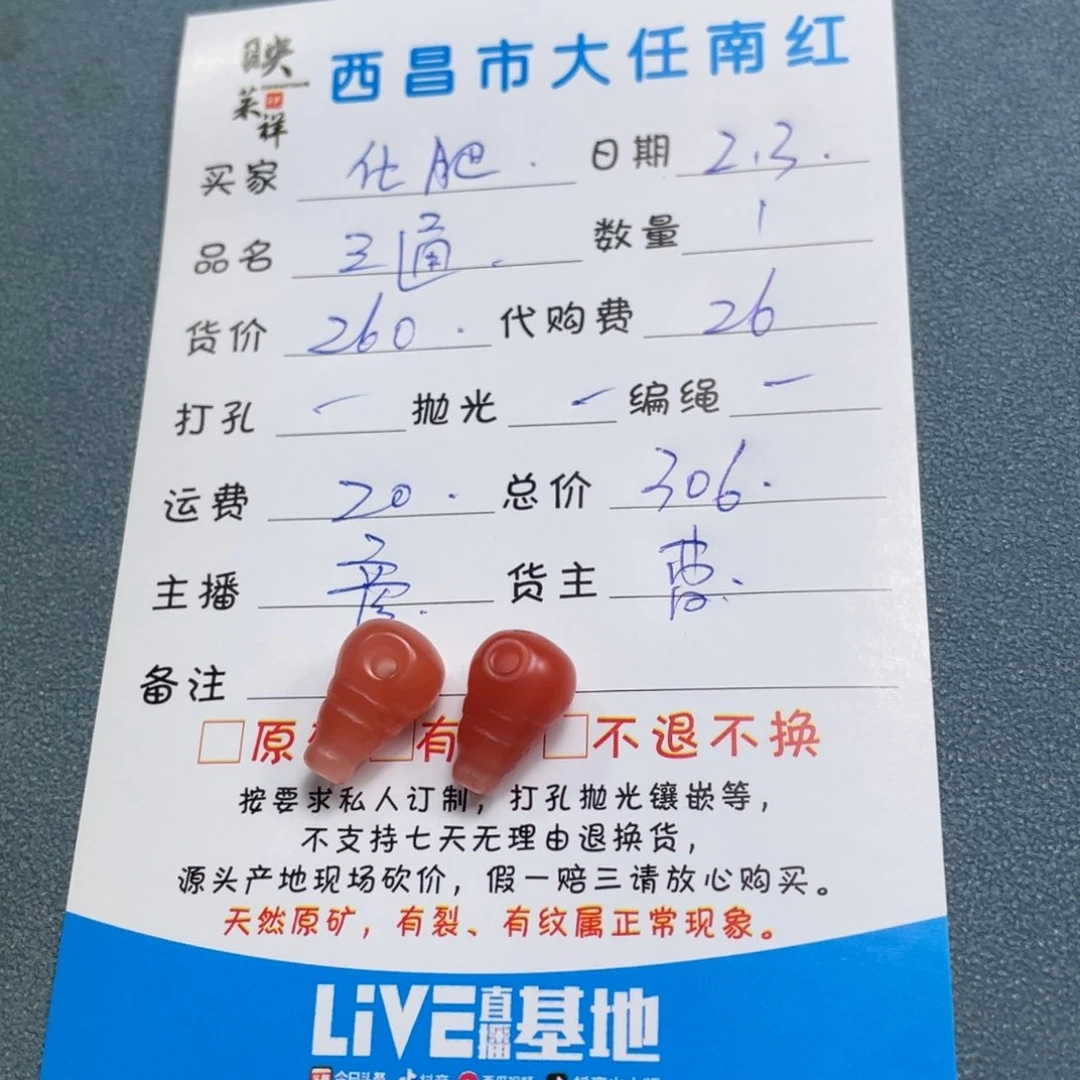 映
莱祥
西昌市大任南红
买家 化肥. 日期 2.3.
品名 三通. 数量 1
货价 260. 代购费 26
打孔 一 抛光 一 编绳 一
运费 20. 总价 306.
主播 货主 曹.
备注
□原 □有 □不退不换
按要求私人订制，打孔抛光镶嵌等，
不支持七天无理由退换货，
源头产地现场砍价，假一赔三请放心购买。
天然原矿，有裂、有纹属正常现象。
LiVE直播基地
今日头条 抖音